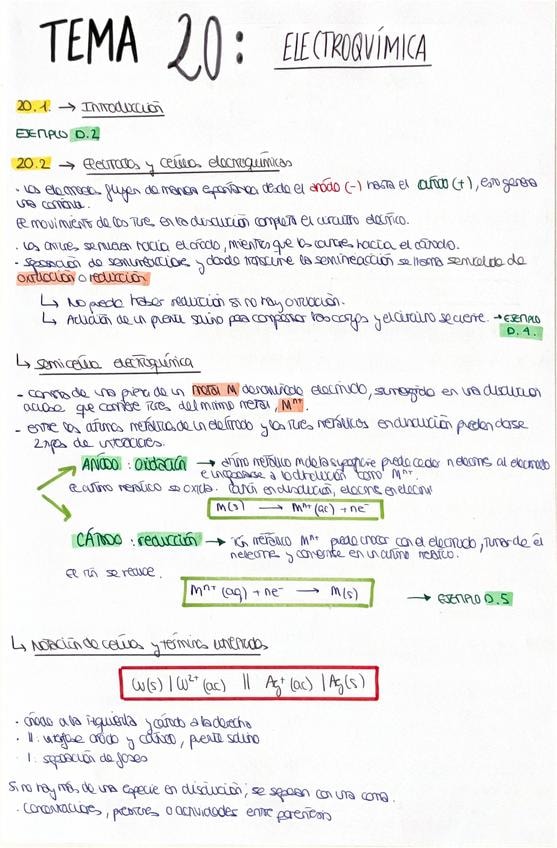 TEMA 20: ELECTROQUÍMICA
20.1. → Introducción
EJEMPLO D.2
20.2 → Electrodos y células electroquímicas
· Los electrones fluyen de manera espontánea desde el ánodo (-) hasta el cátodo (+), esto genera
una corriente.
El movimiento de los iones en la disolución completa el circuito eléctrico.
· Los aniones se mueven hacia el ánodo, mientras que los cationes hacia el cátodo.
· Separación de semirreacciones y donde transcurre la semireacción se llama semicélula de
oxidación o reducción.
↳ No puede haber reducción si no hay oxidación.
↳ Actuación de un puente salino para compensar las cargas y el circuito se cierre. → EJEMPLO
D.4.
↳ Semicélula electroquímica
- consta de una pieza de un metal M denominado electrodo, sumergido en una disolución
acuosa que contiene iones del mismo metal, Mⁿ⁺.
- entre los átomos metálicos de un electrodo y los iones metálicos en disolución pueden darse
2 tipos de interacciones.
ÁNODO: oxidación → átomo metálico M de la superficie puede ceder n electrones al electrodo
e incorporarse a la disolución como Mⁿ⁺.
El átomo metálico se oxida. en disolución,
M(s) → Mⁿ⁺(ac) + ne⁻
CÁTODO: reducción → ión metálico Mⁿ⁺ puede chocar con el electrodo, tomar de él
n electrones y convertirse en un átomo metálico.
El ión se reduce.
Mⁿ⁺(aq) + ne⁻ → M(s) → EJEMPLO D.5
↳ Notación de células y términos
Cu(s) | Cu²⁺(ac) || Ag⁺(ac) | Ag(s)
· ánodo a la izquierda y cátodo a la derecha
· ||: ánodo y cátodo, puente salino
|: separación de fases
Si no hay más de una especie en disolución, se separan con una coma.
· concentraciones, presiones o actividades entre paréntesis